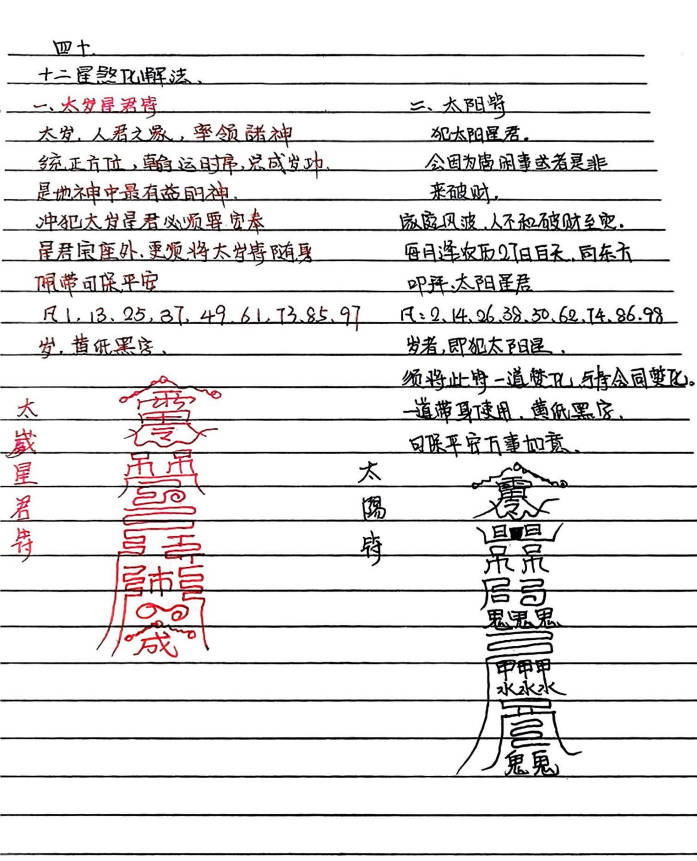 四十、
十二星煞化解法、
一、太岁星君符
太岁，人君之象，率领諸神
统正方位，翰运时序，总成岁功.
是地神中最有益的神.
冲犯太岁星君必须要安奉
星君宝座外.更须将太岁符随身
佩带可保平安
凡1，13、25，37，49.61，73.85.97
岁.黄纸黑字.
太歲星君符
二、太阳符
犯太阳星君.
会因为管闲事或者是非
来破财.
家庭风波.人不和破财至宽.
每月逢农历27日白天,向东方
叩拜.太阳星君
凡:2.14.26.38.50.62.74.86.98
岁者,即犯太阳星.
须将此符一道焚化.与符合同焚化。
一道带身使用.黄纸黑字.
可保平安万事如意.
太陽符